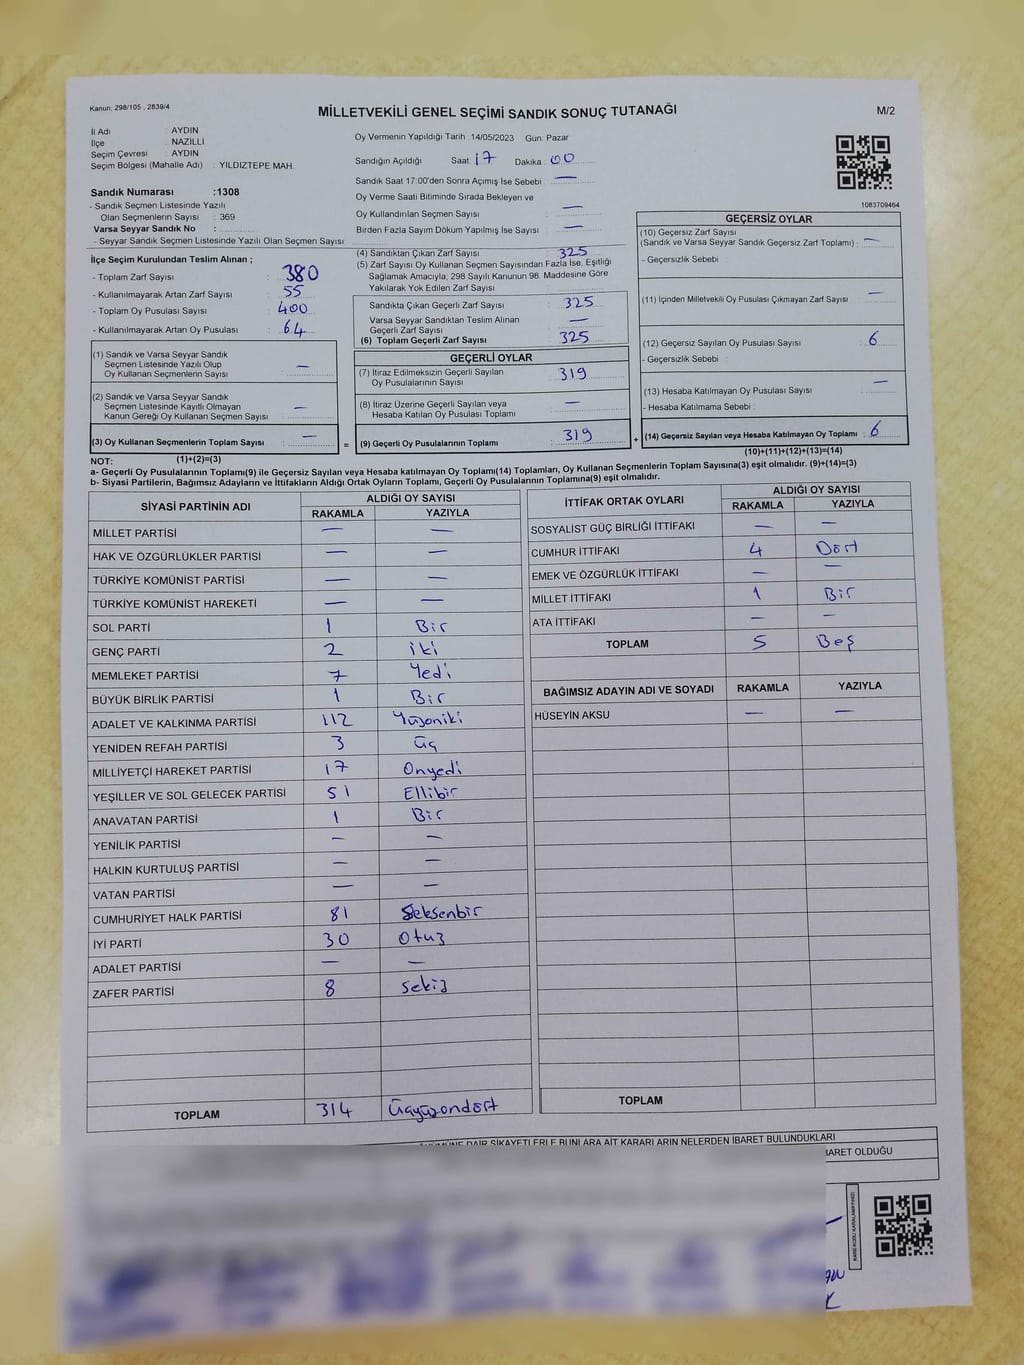 Kanun: 298/105 , 2839/4
MİLLETVEKİLİ GENEL SEÇİMİ SANDIK SONUÇ TUTANAĞI
M/2
İl Adı : AYDIN
İlçe : NAZİLLİ
Seçim Çevresi : AYDIN
Seçim Bölgesi (Mahalle Adı) : YILDIZTEPE MAH.
Sandık Numarası :1308
- Sandık Seçmen Listesinde Yazılı
Olan Seçmenlerin Sayısı : 369
Varsa Seyyar Sandık No :
- Seyyar Sandık Seçmen Listesinde Yazılı Olan Seçmen Sayısı:
Oy Vermenin Yapıldığı Tarih :14/05/2023 Gün: Pazar
Sandığın Açıldığı Saat: 17 Dakika : 00
Sandık Saat 17:00'den Sonra Açımış İse Sebebi : —
Oy Verme Saati Bitiminde Sırada Bekleyen ve
Oy Kullandırılan Seçmen Sayısı : —
Birden Fazla Sayım Döküm Yapılmış İse Sayısı : —
1083709464
İlçe Seçim Kurulundan Teslim Alınan ;
- Toplam Zarf Sayısı : 380
- Kullanılmayarak Artan Zarf Sayısı : 55
- Toplam Oy Pusulası Sayısı : 400
- Kullanılmayarak Artan Oy Pusulası : 64
(1) Sandık ve Varsa Seyyar Sandık
Seçmen Listesinde Yazılı Olup
Oy Kullanan Seçmenlerin Sayısı : —
(2) Sandık ve Varsa Seyyar Sandık
Seçmen Listesinde Kayıtlı Olmayan
Kanun Gereği Oy Kullanan Seçmen Sayısı : —
(3) Oy Kullanan Seçmenlerin Toplam Sayısı : —
(1)+(2)=(3)
(4) Sandıktan Çıkan Zarf Sayısı : 325
(5) Zarf Sayısı Oy Kullanan Seçmen Sayısından Fazla İse, Eşitliği
Sağlamak Amacıyla, 298 Sayılı Kanunun 98. Maddesine Göre
Yakılarak Yok Edilen Zarf Sayısı :
Sandıkta Çıkan Geçerli Zarf Sayısı : 325
Varsa Seyyar Sandıktan Teslim Alınan
Geçerli Zarf Sayısı : —
(6) Toplam Geçerli Zarf Sayısı : 325
GEÇERLİ OYLAR
(7) İtiraz Edilmeksizin Geçerli Sayılan
Oy Pusulalarının Sayısı : 319
(8) İtiraz Üzerine Geçerli Sayılan veya
Hesaba Katılan Oy Pusulası Toplamı : —
= (9) Geçerli Oy Pusulalarının Toplamı : 319
GEÇERSİZ OYLAR
(10) Geçersiz Zarf Sayısı
(Sandık ve Varsa Seyyar Sandık Geçersiz Zarf Toplamı) : —
- Geçersizlik Sebebi :
(11) İçinden Milletvekili Oy Pusulası Çıkmayan Zarf Sayısı : —
(12) Geçersiz Sayılan Oy Pusulası Sayısı : 6
- Geçersizlik Sebebi :
(13) Hesaba Katılmayan Oy Pusulası Sayısı : —
- Hesaba Katılmama Sebebi :
+ (14) Geçersiz Sayılan veya Hesaba Katılmayan Oy Toplamı : 6
(10)+(11)+(12)+(13)=(14)
NOT:
a- Geçerli Oy Pusulalarının Toplamı(9) ile Geçersiz Sayılan veya Hesaba katılmayan Oy Toplamı(14) Toplamları, Oy Kullanan Seçmenlerin Toplam Sayısına(3) eşit olmalıdır. (9)+(14)=(3)
b- Siyasi Partilerin, Bağımsız Adayların ve İttifakların Aldığı Ortak Oyların Toplamı, Geçerli Oy Pusulalarının Toplamına(9) eşit olmalıdır.
SİYASİ PARTİNİN ADI ALDIĞI OY SAYISI
RAKAMLA YAZIYLA
MİLLET PARTİSİ — —
HAK VE ÖZGÜRLÜKLER PARTİSİ — —
TÜRKİYE KOMÜNİST PARTİSİ — —
TÜRKİYE KOMÜNİST HAREKETİ — —
SOL PARTİ 1 Bir
GENÇ PARTİ 2 iki
MEMLEKET PARTİSİ 7 Yedi
BÜYÜK BİRLİK PARTİSİ 1 Bir
ADALET VE KALKINMA PARTİSİ 112 Yüzoniki
YENİDEN REFAH PARTİSİ 3 Üç
MİLLİYETÇİ HAREKET PARTİSİ 17 Onyedi
YEŞİLLER VE SOL GELECEK PARTİSİ 51 Ellibir
ANAVATAN PARTİSİ 1 Bir
YENİLİK PARTİSİ — —
HALKIN KURTULUŞ PARTİSİ — —
VATAN PARTİSİ — —
CUMHURİYET HALK PARTİSİ 81 Seksenbir
İYİ PARTİ 30 Otuz
ADALET PARTİSİ — —
ZAFER PARTİSİ 8 Sekiz
TOPLAM 314 Üçyüzondört
İTTİFAK ORTAK OYLARI ALDIĞI OY SAYISI
RAKAMLA YAZIYLA
SOSYALİST GÜÇ BİRLİĞİ İTTİFAKI — —
CUMHUR İTTİFAKI 4 Dört
EMEK VE ÖZGÜRLÜK İTTİFAKI — —
MİLLET İTTİFAKI 1 Bir
ATA İTTİFAKI — —
TOPLAM 5 Beş
BAĞIMSIZ ADAYIN ADI VE SOYADI RAKAMLA YAZIYLA
HÜSEYİN AKSU — —
TOPLAM
DAİR ŞİKAYETLERLE BUNLARA AİT KARARLARIN NELERDEN İBARET BULUNDUKLARI
BARET OLDUĞU